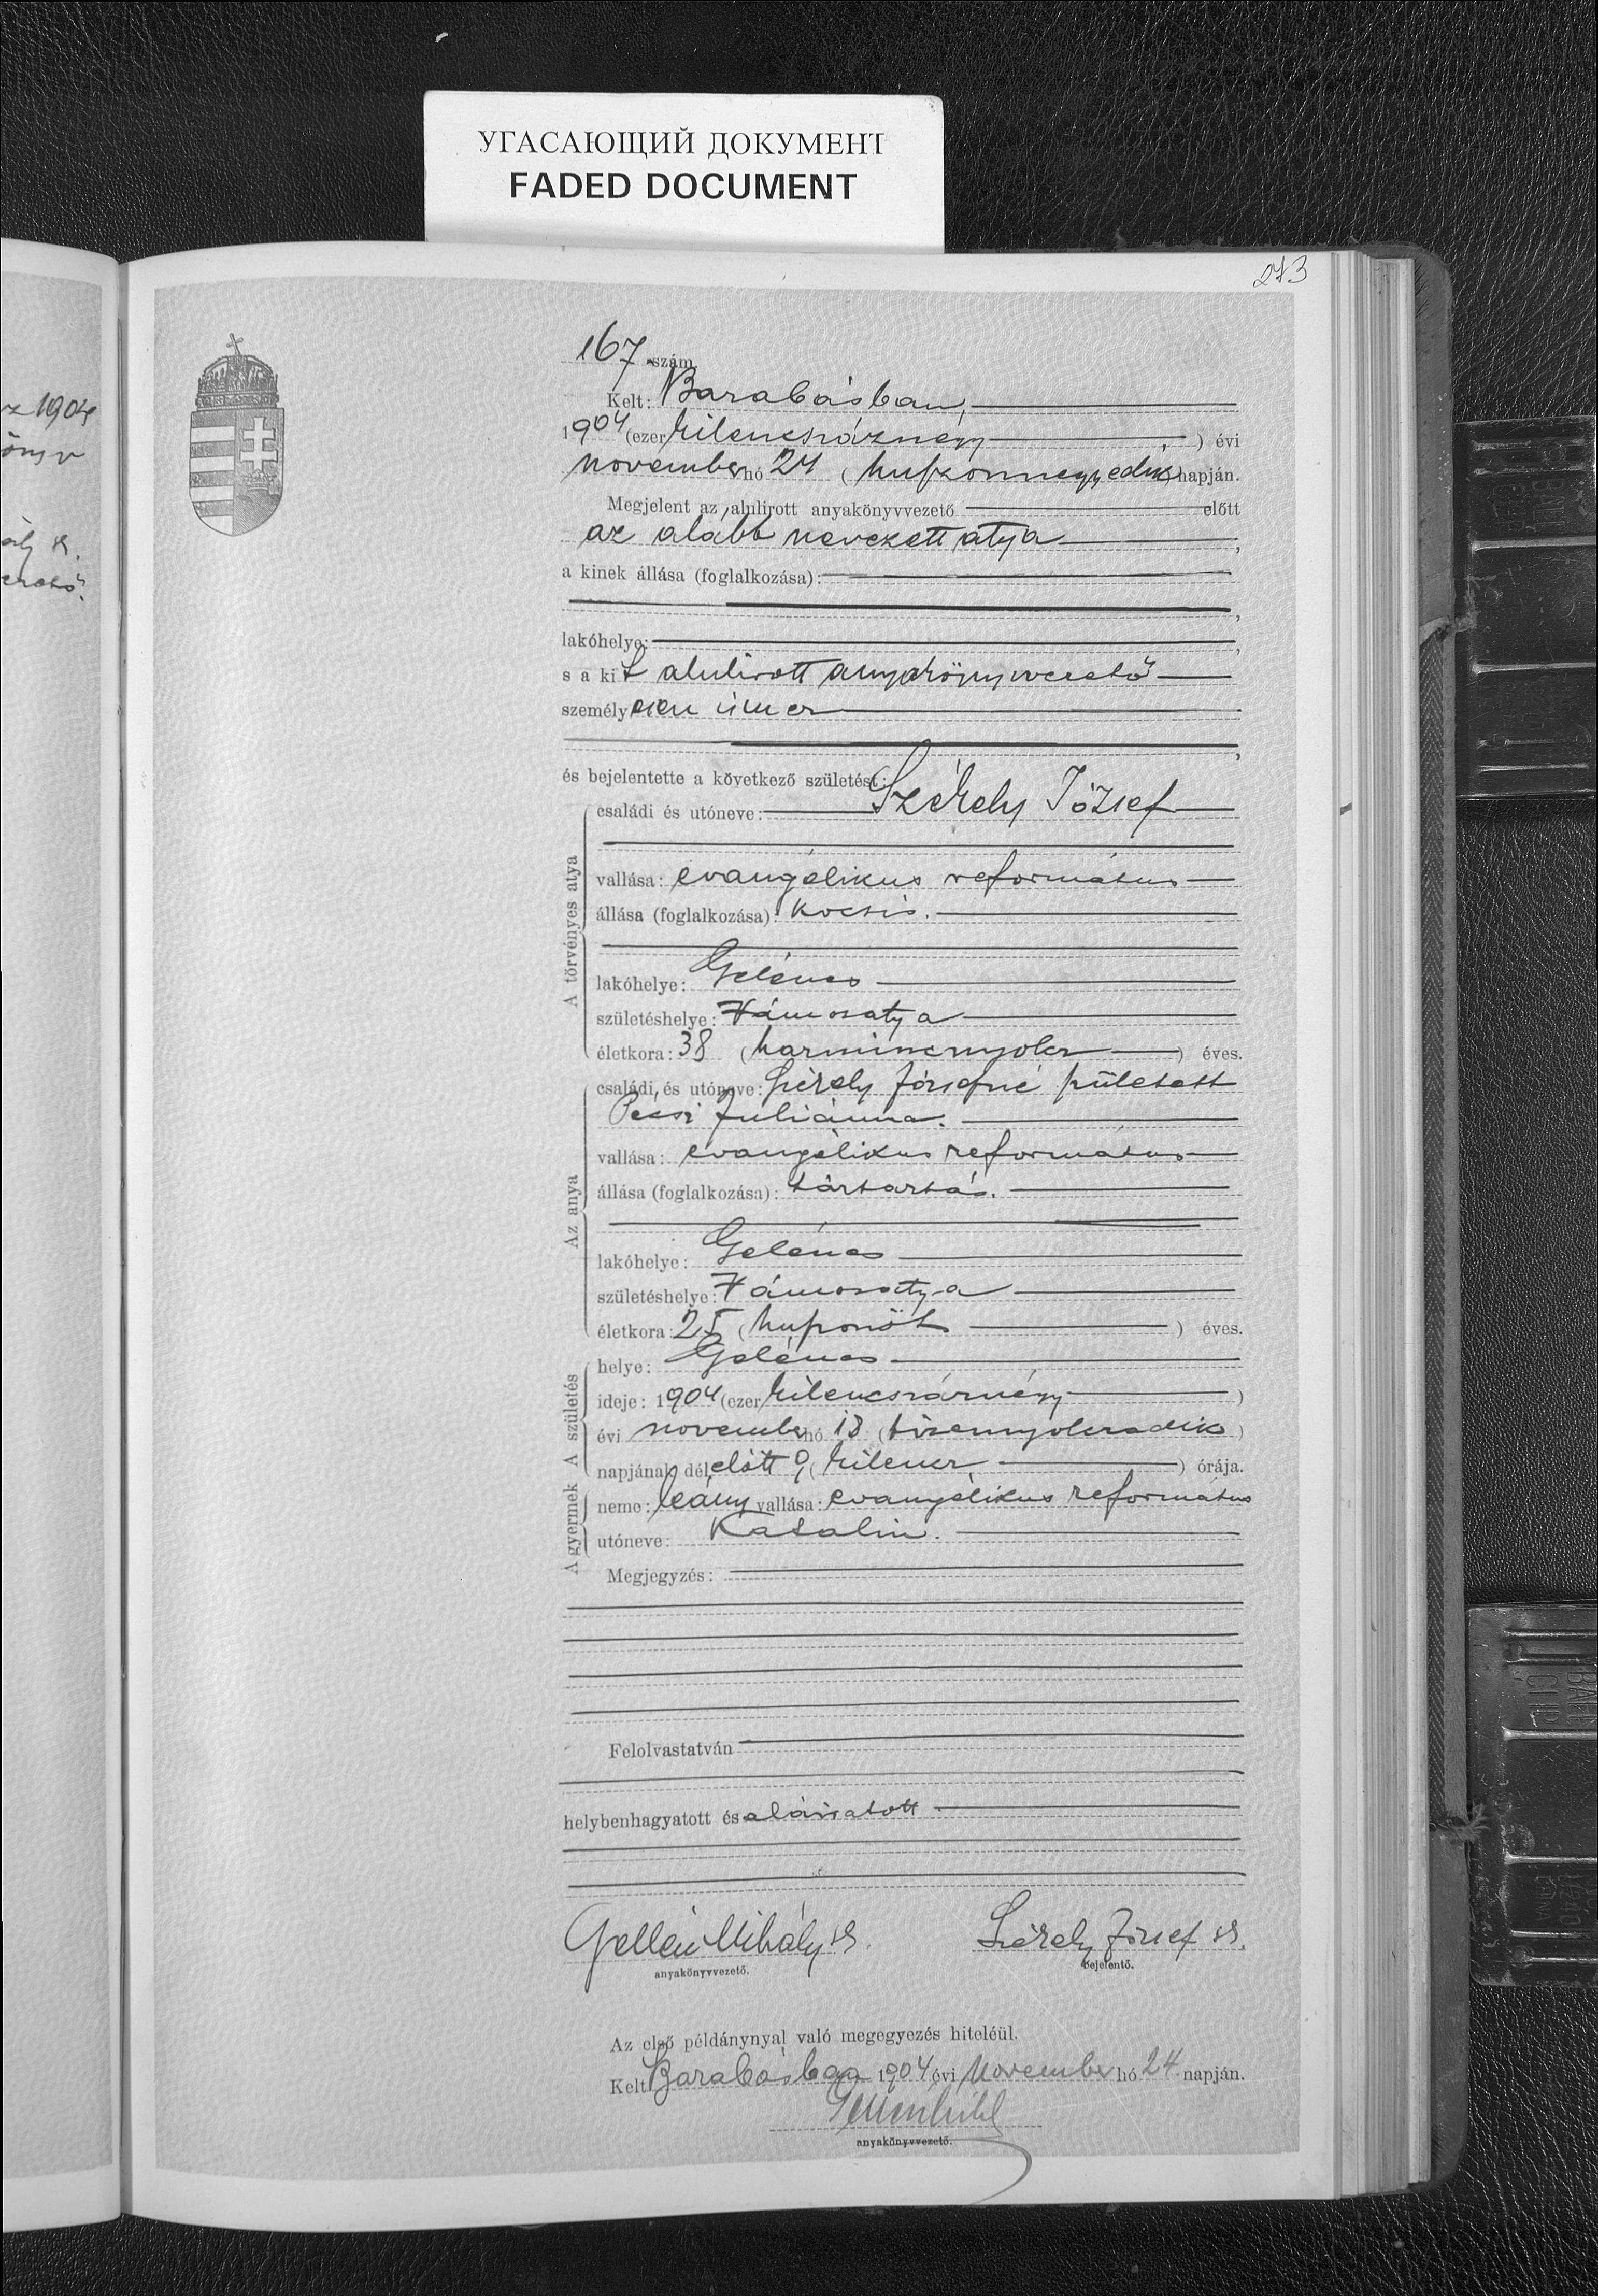 УГАСАЮЩИЙ ДОКУМЕНТ
FADED DOCUMENT
273
z 1904
önyv
ály k.
167 szám
Kelt: Barabásban,
1904 (ezer kilencszáznégy) évi
november hó 24 (huszonnegyedik) napján.
Megjelent az alulirott anyakönyvvezető előtt
az alább nevezett atya,
a kinek állása (foglalkozása):
lakóhelye:
s a kit alulirott anyakönyvvezető
személyesen ismer
és bejelentette a következő születést:
A törvényes atya
családi és utóneve: Székely József
vallása: evangélikus református
állása (foglalkozása): kocsis.
lakóhelye: Gelénes
születéshelye: Vámosatya
életkora: 38 (harmincnyolc) éves.
Az anya
családi és utóneve: Székely Józsefné született
Pécsi Juliánna.
vallása: evangélikus református
állása (foglalkozása): háztartás.
lakóhelye: Gelénes
születéshelye: Vámosatya
életkora: 25 (huszonöt) éves.
A születés
helye: Gelénes
ideje: 1904 (ezer kilencszáznégy)
évi november hó 18 (tizennyolcadik)
napjának délelőtt 9 (kilenc) órája.
A gyermek
neme: leány vallása: evangélikus református
utóneve: Katalin.
Megjegyzés:
Felolvastatván
helybenhagyatott és aláiratott
Gellén Mihály sk. Székely József sk.
anyakönyvvezető. bejelentő.
Az első példánynyal való megegyezés hiteléül.
Kelt Barabásban 1904 évi november hó 24. napján.
Gellén Mihály
anyakönyvvezető.